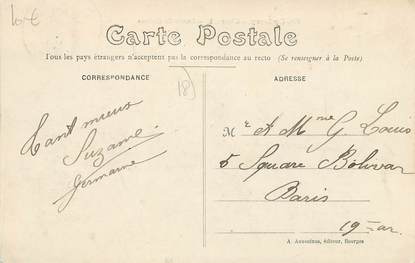 10€
Carte Postale
Tous les pays étrangers n'acceptent pas la correspondance au recto (Se renseigner à la Poste)
CORRESPONDANCE
ADRESSE
18)
Tant mieux
Suzanne
Germaine
Mr et Mme G Louis
5 Square Bolivar
Paris
19e ar
A. Auxenfans, éditeur, Bourges